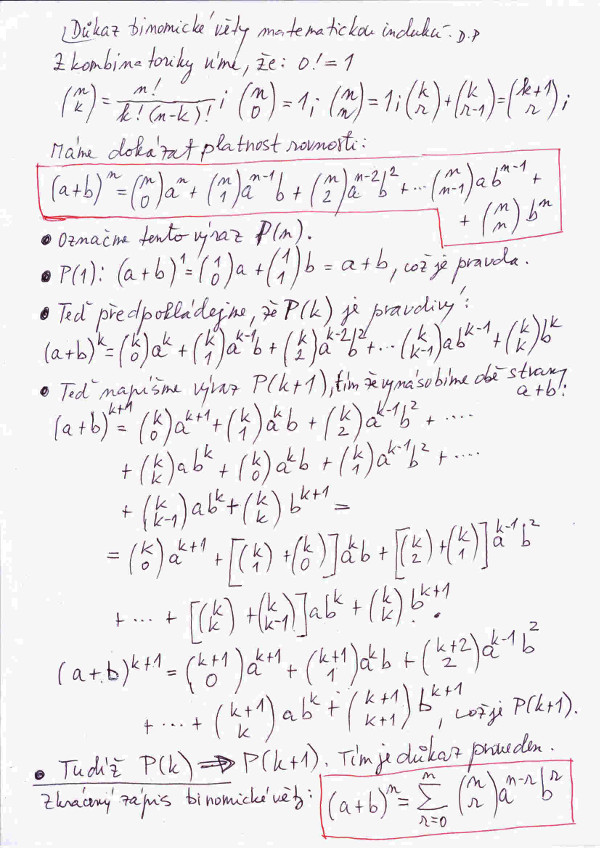 Důkaz binomické věty matematickou indukcí - D.P
Z kombinatoriky víme, že: 0! = 1
(n k) = n! / k!(n-k)! ; (n 0) = 1; (n n) = 1; (k r) + (k r-1) = (k+1 r);
Máme dokázat platnost rovnosti:
(a+b)^n = (n 0)a^n + (n 1)a^{n-1}b + (n 2)a^{n-2}b^2 + ... (n n-1)ab^{n-1} +
+ (n n)b^n
• Označme tento výraz P(n).
• P(1): (a+b)^1 = (1 0)a + (1 1)b = a+b, což je pravda.
• Teď předpokládejme, že P(k) je pravdivý:
(a+b)^k = (k 0)a^k + (k 1)a^{k-1}b + (k 2)a^{k-2}b^2 + ... (k k-1)ab^{k-1} + (k k)b^k
• Teď napišme výraz P(k+1), tím že vynásobíme obě strany
a+b:
(a+b)^{k+1} = (k 0)a^{k+1} + (k 1)a^k b + (k 2)a^{k-1}b^2 + ....
+ (k k)ab^k + (k 0)a^k b + (k 1)a^{k-1}b^2 + ....
+ (k k-1)ab^k + (k k)b^{k+1} =
= (k 0)a^{k+1} + [(k 1) + (k 0)]a^k b + [(k 2) + (k 1)]a^{k-1}b^2
+ ... + [(k k) + (k k-1)]ab^k + (k k)b^{k+1}.
(a+b)^{k+1} = (k+1 0)a^{k+1} + (k+1 1)a^k b + (k+2 2)a^{k-1}b^2
+ ... + (k+1 k)ab^k + (k+1 k+1)b^{k+1}, což je P(k+1).
• Tudíž P(k) ⇒ P(k+1). Tím je důkaz proveden.
Zkrácený zápis binomické věty: (a+b)^n = ∑_{r=0}^{n} (n r)a^{n-r}b^r